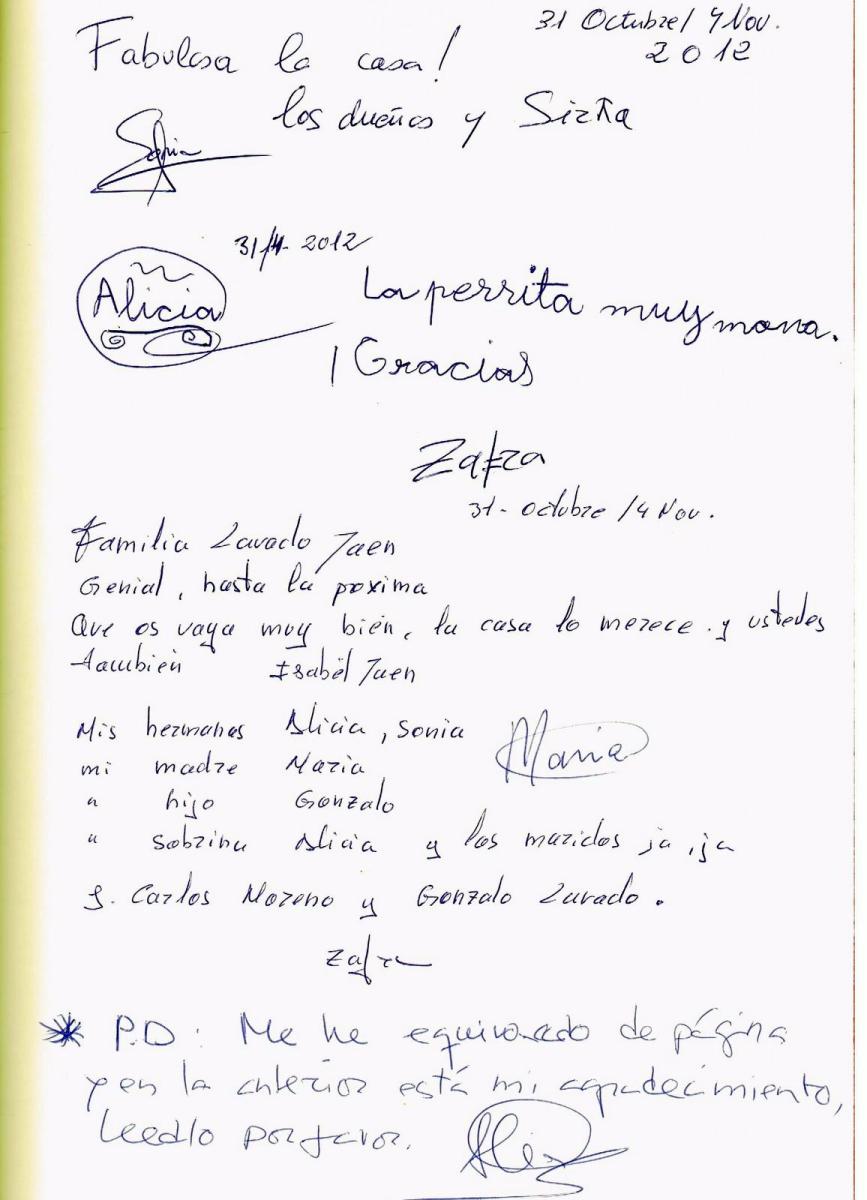 31 Octubre/ 4 Nov.
2012
Fabulosa la casa!
los dueños y
Sonia
31/4- 2012
Alicia
La perrita muy mona.
¡Gracias
Zafra
31- octubre /4 Nov.
Familia Lavado Jaen
Genial, hasta la poxima
Que os vaya muy bién, la casa lo merece. y ustedes
tambien Isabel Jaen
Mis hermanas Alicia, Sonia
Maria
mi madre Maria
" hijo Gonzalo
" sobrina Alicia y los maridos ja, ja
J. Carlos Moreno y Gonzalo Lavado.
Zafra
* P.D: Me he equivocado de página
y en la anterior está mi agradecimiento,
leedlo por favor.
Alicia